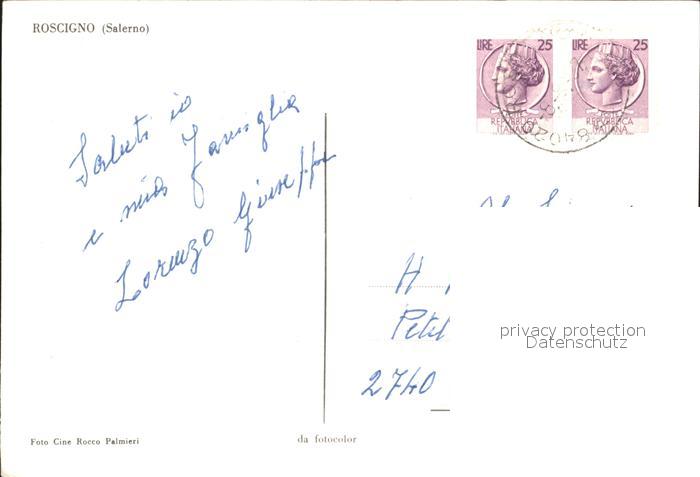 ROSCIGNO (Salerno)
LIRE 25
LIRE 25
REPUBBLICA
ITALIANA
REPUBBLICA
ITALIANA
84020
Saluti io
e mia famiglia
Lorenzo Giuseppe
H
Petit
2740
privacy protection
Datenschutz
Foto Cine Rocco Palmieri
da fotocolor